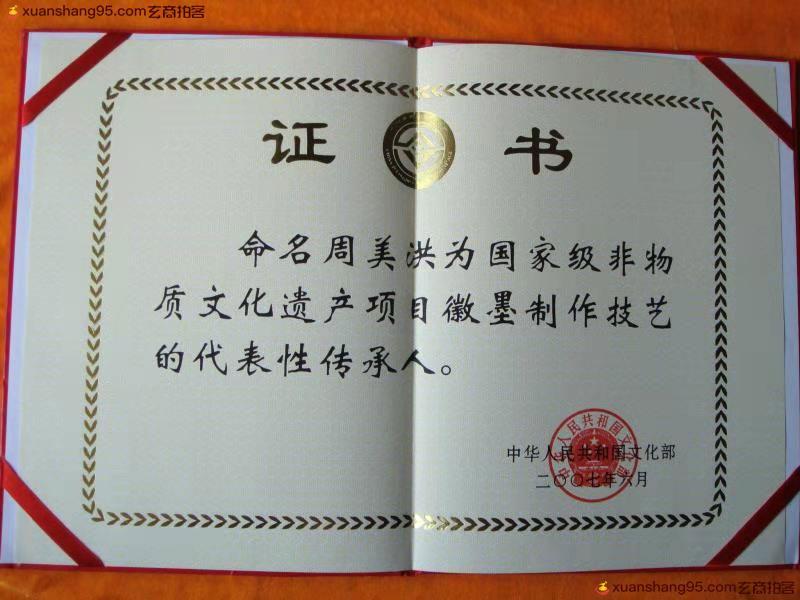 xuanshang95.com玄商拍客
证 书
命名周美洪为国家级非物
质文化遗产项目徽墨制作技艺
的代表性传承人。
中华人民共和国文化部
二〇〇七年六月
中华人民共和国文化部
xuanshang95.com玄商拍客